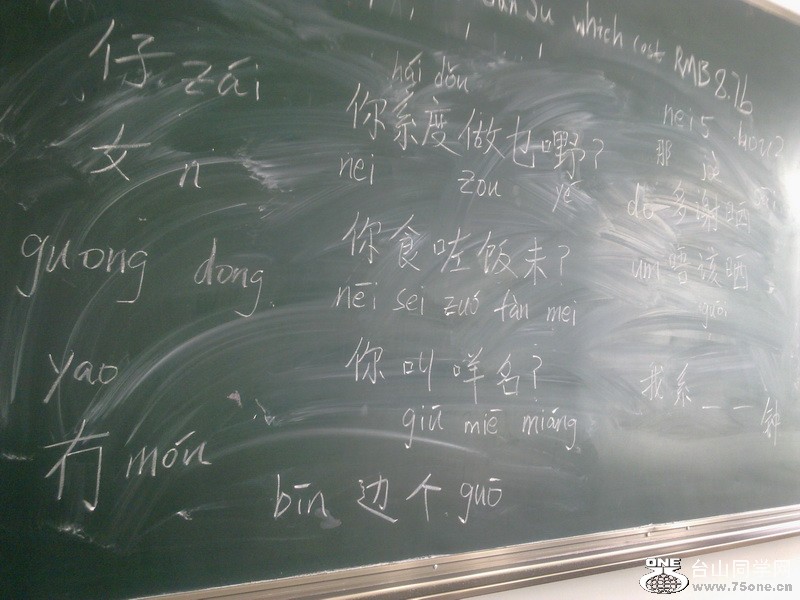 which cost RMB 8.76
仔 zái
女 n
guong dong
yao
冇 móu
hái dōu
你系度做乜嘢?
nei zou yě
你食咗饭未?
nēi sei zuó fàn mei
你叫咩名?
giū miē miáng
bīn 边个 guō
nei5 hou2
那
多谢晒
唔该晒
我系——钟
ONE 台山同学网
www.75one.cn